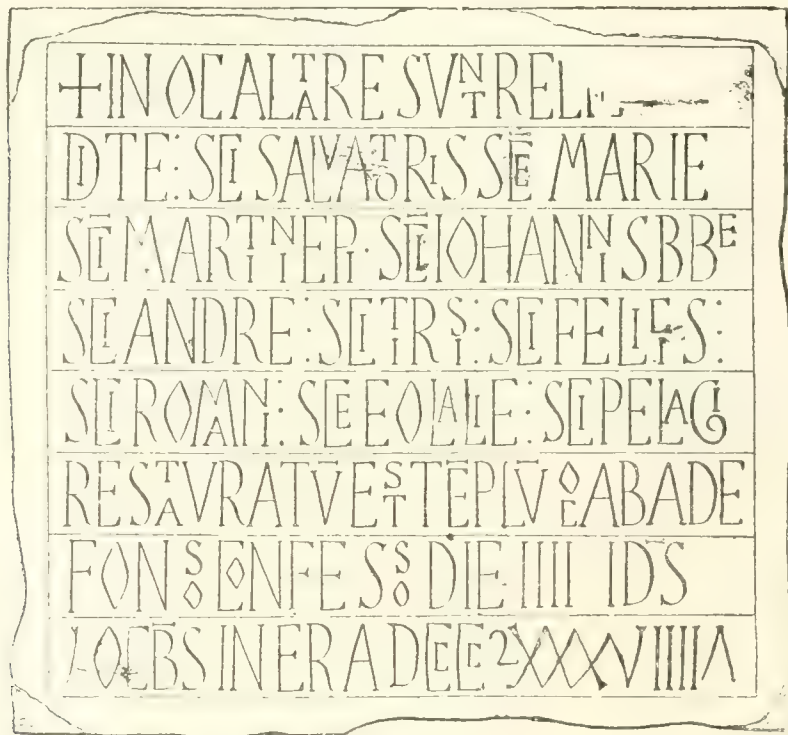 + IN OC ALTARE SVNT RELI
DITE: SCI SALVATORIS SCE MARIE
SCI MARTINI EPI· SCI IOHANNIS BBE
SCI ANDRE: SCI TIRSI: SCI FELICIS:
SCI ROMANI: SCE EOLALIE: SCI PELAGI
RESTAVRATV̄ EST TĒPLV̄ OC ABADE
FONSO CONFESSO DIE IIII IDS
IN ERA DCCCC